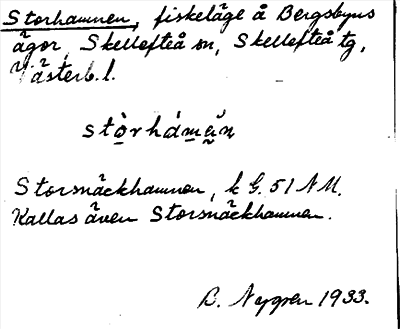 Storhamnen, fiskeläge å Bergsbyns
ägor, Skellefteå sn, Skellefteå tg,
Västerb. l.
stòrhámǝ̆n
Storsnäckhamnen, k G. 51 NM.
Kallas även Storsnäckhamnen.
B. Nygren 1933.